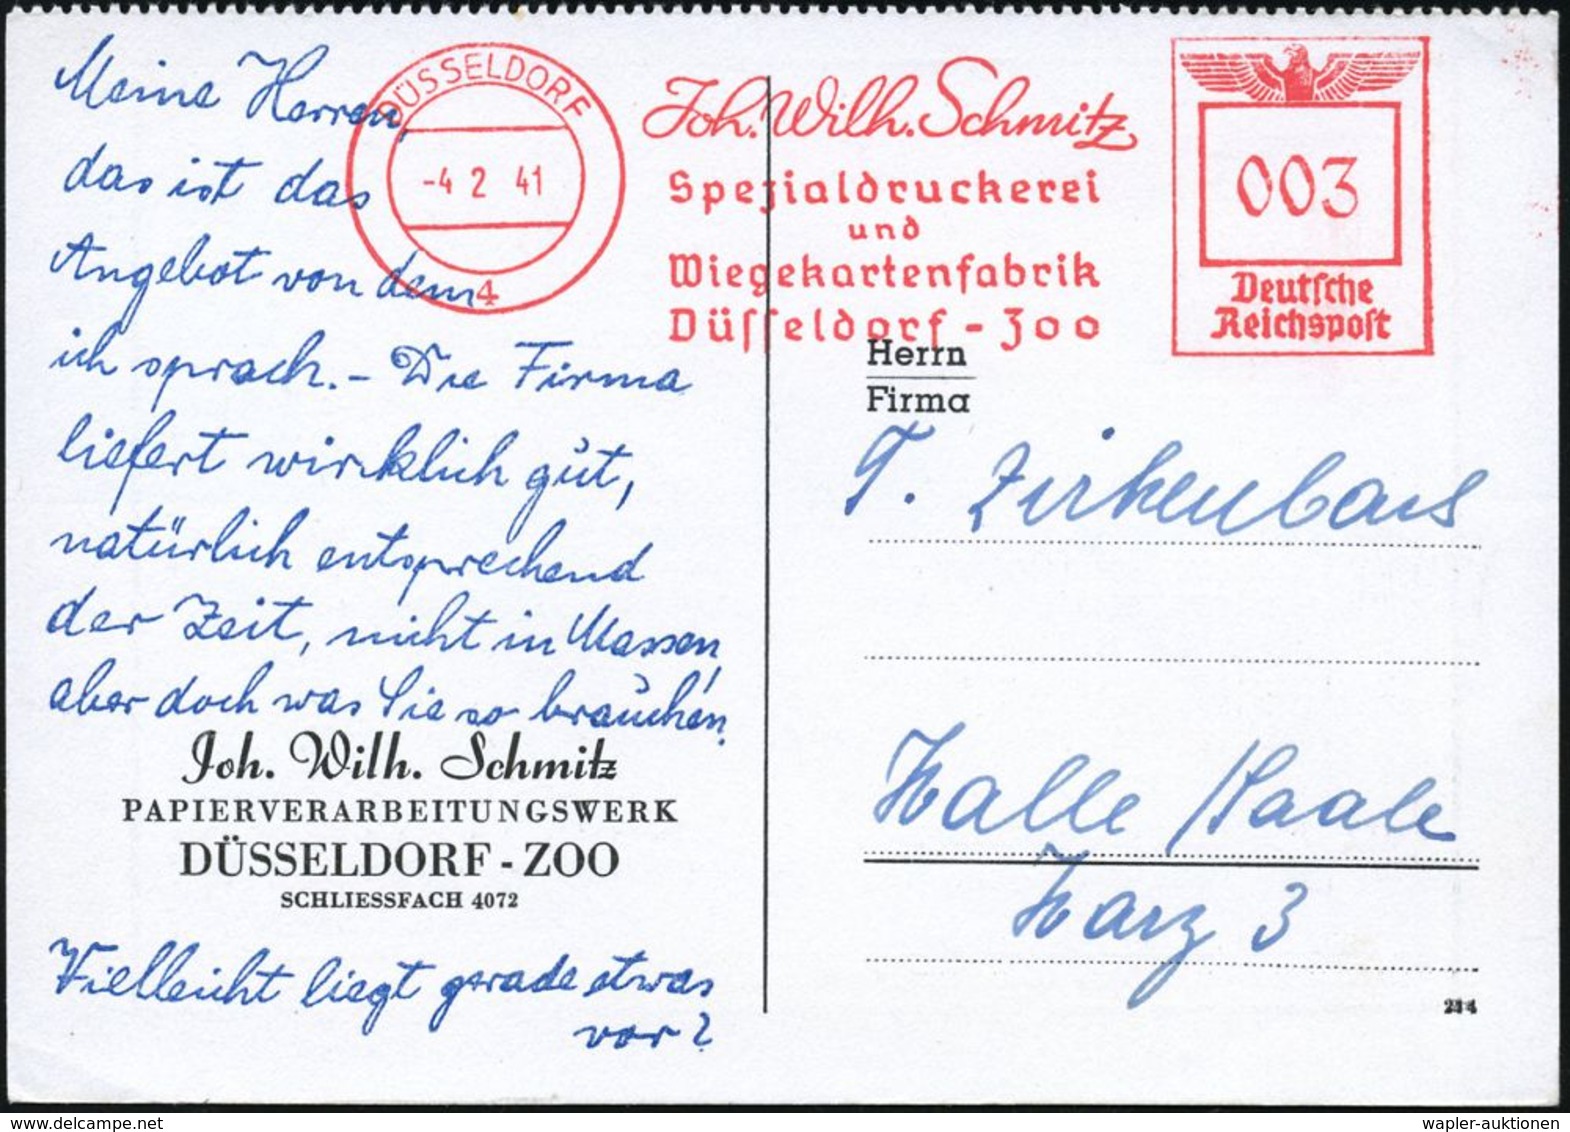 Meine Herren,
das ist das
Angebot von dem
ich sprach. – Die Firma
liefert wirklich gut,
natürlich entsprechend
der Zeit, nicht in Massen,
aber doch was Sie so brauchen.
Joh. Wilh. Schmitz
PAPIERVERARBEITUNGSWERK
DÜSSELDORF - ZOO
SCHLIESSFACH 4072
Vielleicht liegt gerade etwas
vor?
DÜSSELDORF
-4 2 41
4
Joh. Wilh. Schmitz
Spezialdruckerei
und
Wiegekartenfabrik
Düsseldorf - Zoo
003
Deutsche
Reichspost
Herrn
Firma
T. Zirkenbach
Halle / Saale
Harz 3
214
(c) wapler-auktionen